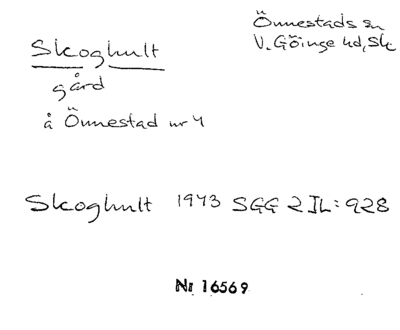 Skoghult
gård
å Önnestad nr 4
Önnestads sn
V. Göinge hd, Sk
Skoghult 1943 SGG 2 IL: 928
Nr 16569